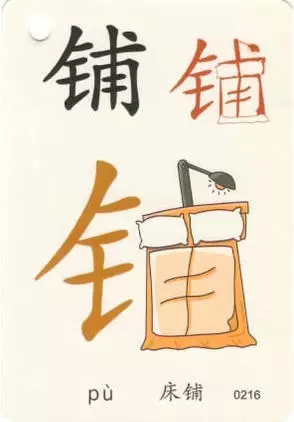 铺 铺
铺
pù 床铺 0216